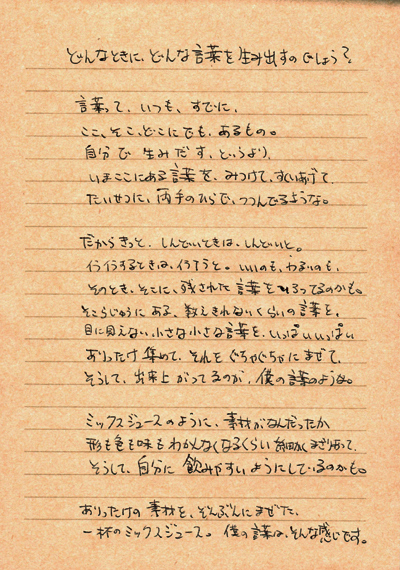 どんなときに、どんな言葉を生み出すのでしょう?
言葉って、いつも、すでに、
ここ、そこ、どこにでも、あるもの。
自分で 生みだす、というより、
いまここにある言葉を、みつけて、すくいあげて、
たいせつに、両手のひらで、つつんでるような。
だからきっと、しんどいときは、しんどいと。
行 行するときは、行こうと。いいのも、わるいのも、
そのとき、そこに、残された 言葉を ってるのかも。
そこらじゅうに ある、数えきれないくらいの言葉を、
目に見えない小さな小さな言葉を、いっぱいいっぱい
ありったけ 集めて、それを ぐちゃぐちゃに まぜて、
そうして、出来上がってるのが、僕の言葉のような。
ミックスジュースのように、素材がなんだったか
形も色も味も わかんなくなるくらい 細かく まざりあって、
そうして、自分に 飲みやすい ようにしているのかも。
ありったけの 素材を、ぞんぶんに まぜた、
一杯のミックスジュース。 僕の言葉は、そんな感じです。